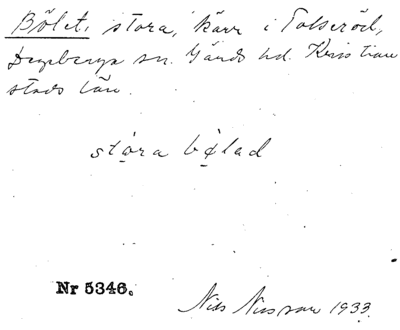 Bölet, stora, kärr i Tolseröd,
Degeberga sn. Gärds hd. Kristian
stads län.
stọra bø̣lad
Nr 5346.
Nils Nilsson 1933.